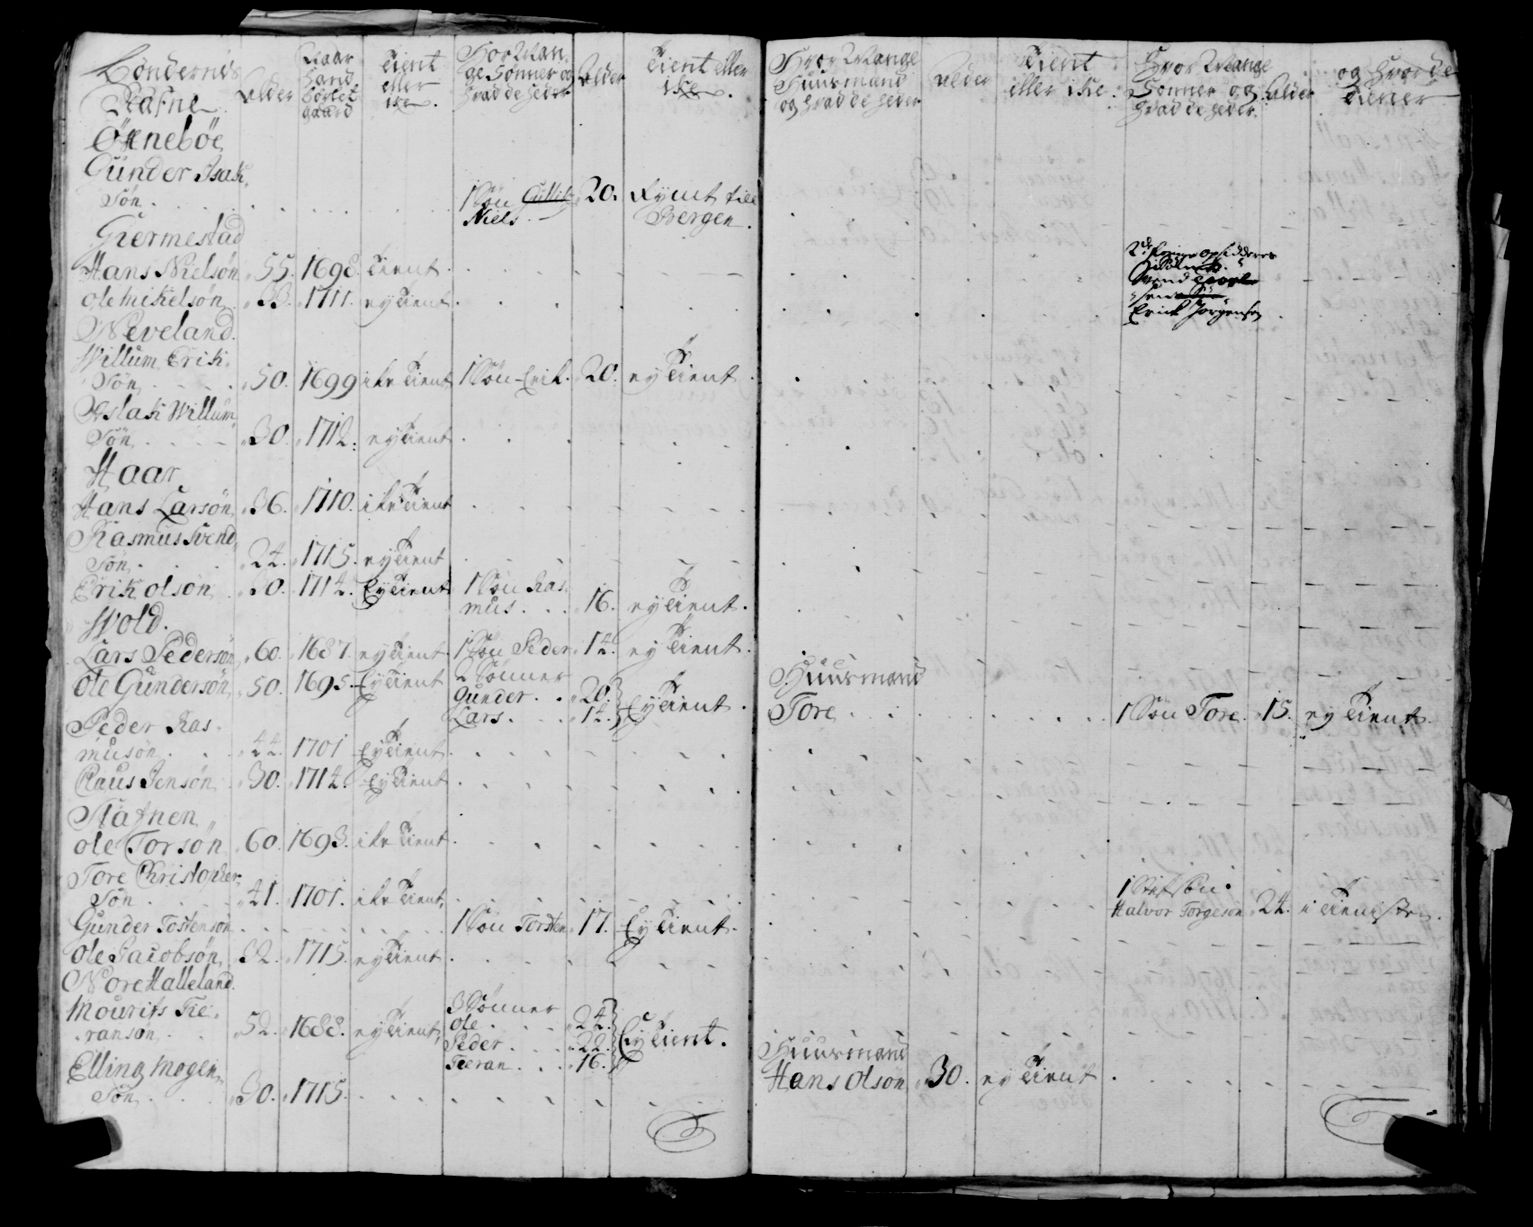 Bøndernis Nafne | Alder | Naar hand børlet gaard | Tient eller ike | Hvor Man, ge Sønner og hvad de heder | Alder | Tient eller ike | Hvor Mange Huusmænd og hvad de heder | Alder | Tient eller ike | Hvor Mange Sønner og hvad de heder | Alder | og hvor de tiener
Østebøe
Gunder Isak, Søn | 1 Søn Niels | 20. | Rymt till Bergen.
Giermestad
Hans Nielsøn | 55. | 1698 | Tient | 2de
Erick Jørgensen
Ole Mikelsøn | 33. | 1711. | ey tient
Neveland.
Willum Erik, Søn | 50. | 1699 | ike tient | 1 Søn Erik. | 20. | ey tient
Aslak Willum, Søn | 30. | 1712. | ey tient
Haar
Hans Larsøn | 36. | 1710. | ike tient
Rasmus Svend, Søn | 24. | 1715. | ey tient
Erik Olsøn | 30. | 1714. | Ey tient | 1 Søn Ras, mus | 16. | ey tient.
Wold.
Lars Pedersøn | 60. | 1687. | ey tient | 1 Søn Peder | 14. | ey tient.
Ole Gundersøn | 50. | 1695. | Ey tient | 2 Sønner
Gunder | 20.
Lars | 14. | Ey tient. | Huusmand Tore | 1 Søn Tore. | 15. | ey tient
Peder Ras, musøn | 44. | 1701 | Ey tient
Claus Jensøn | 30. | 1714. | Ey tient
Stafnen
Ole Torsøn | 60. | 1693. | ike tient
Tore Christopher, Søn | 41. | 1701. | ike tient. | 1 Stifsøn. Halvor Torgersøn | 24. | i tieniste
Gunder Tostensøn | 1 Søn Torsten | 17. | Ey tient.
Ole Jacobsøn | 32. | 1715. | ey tient
Nore Halleland.
Mourits Tie, ransøn | 52. | 1688. | ey tient | 3 Sønner
Ole | 24.
Peder | 22. | Ey tient.
Tieran | 16.
Elling Mogen, Søn | 30. | 1715. | Huusmand Hans Olsøn | 30. | ey tient